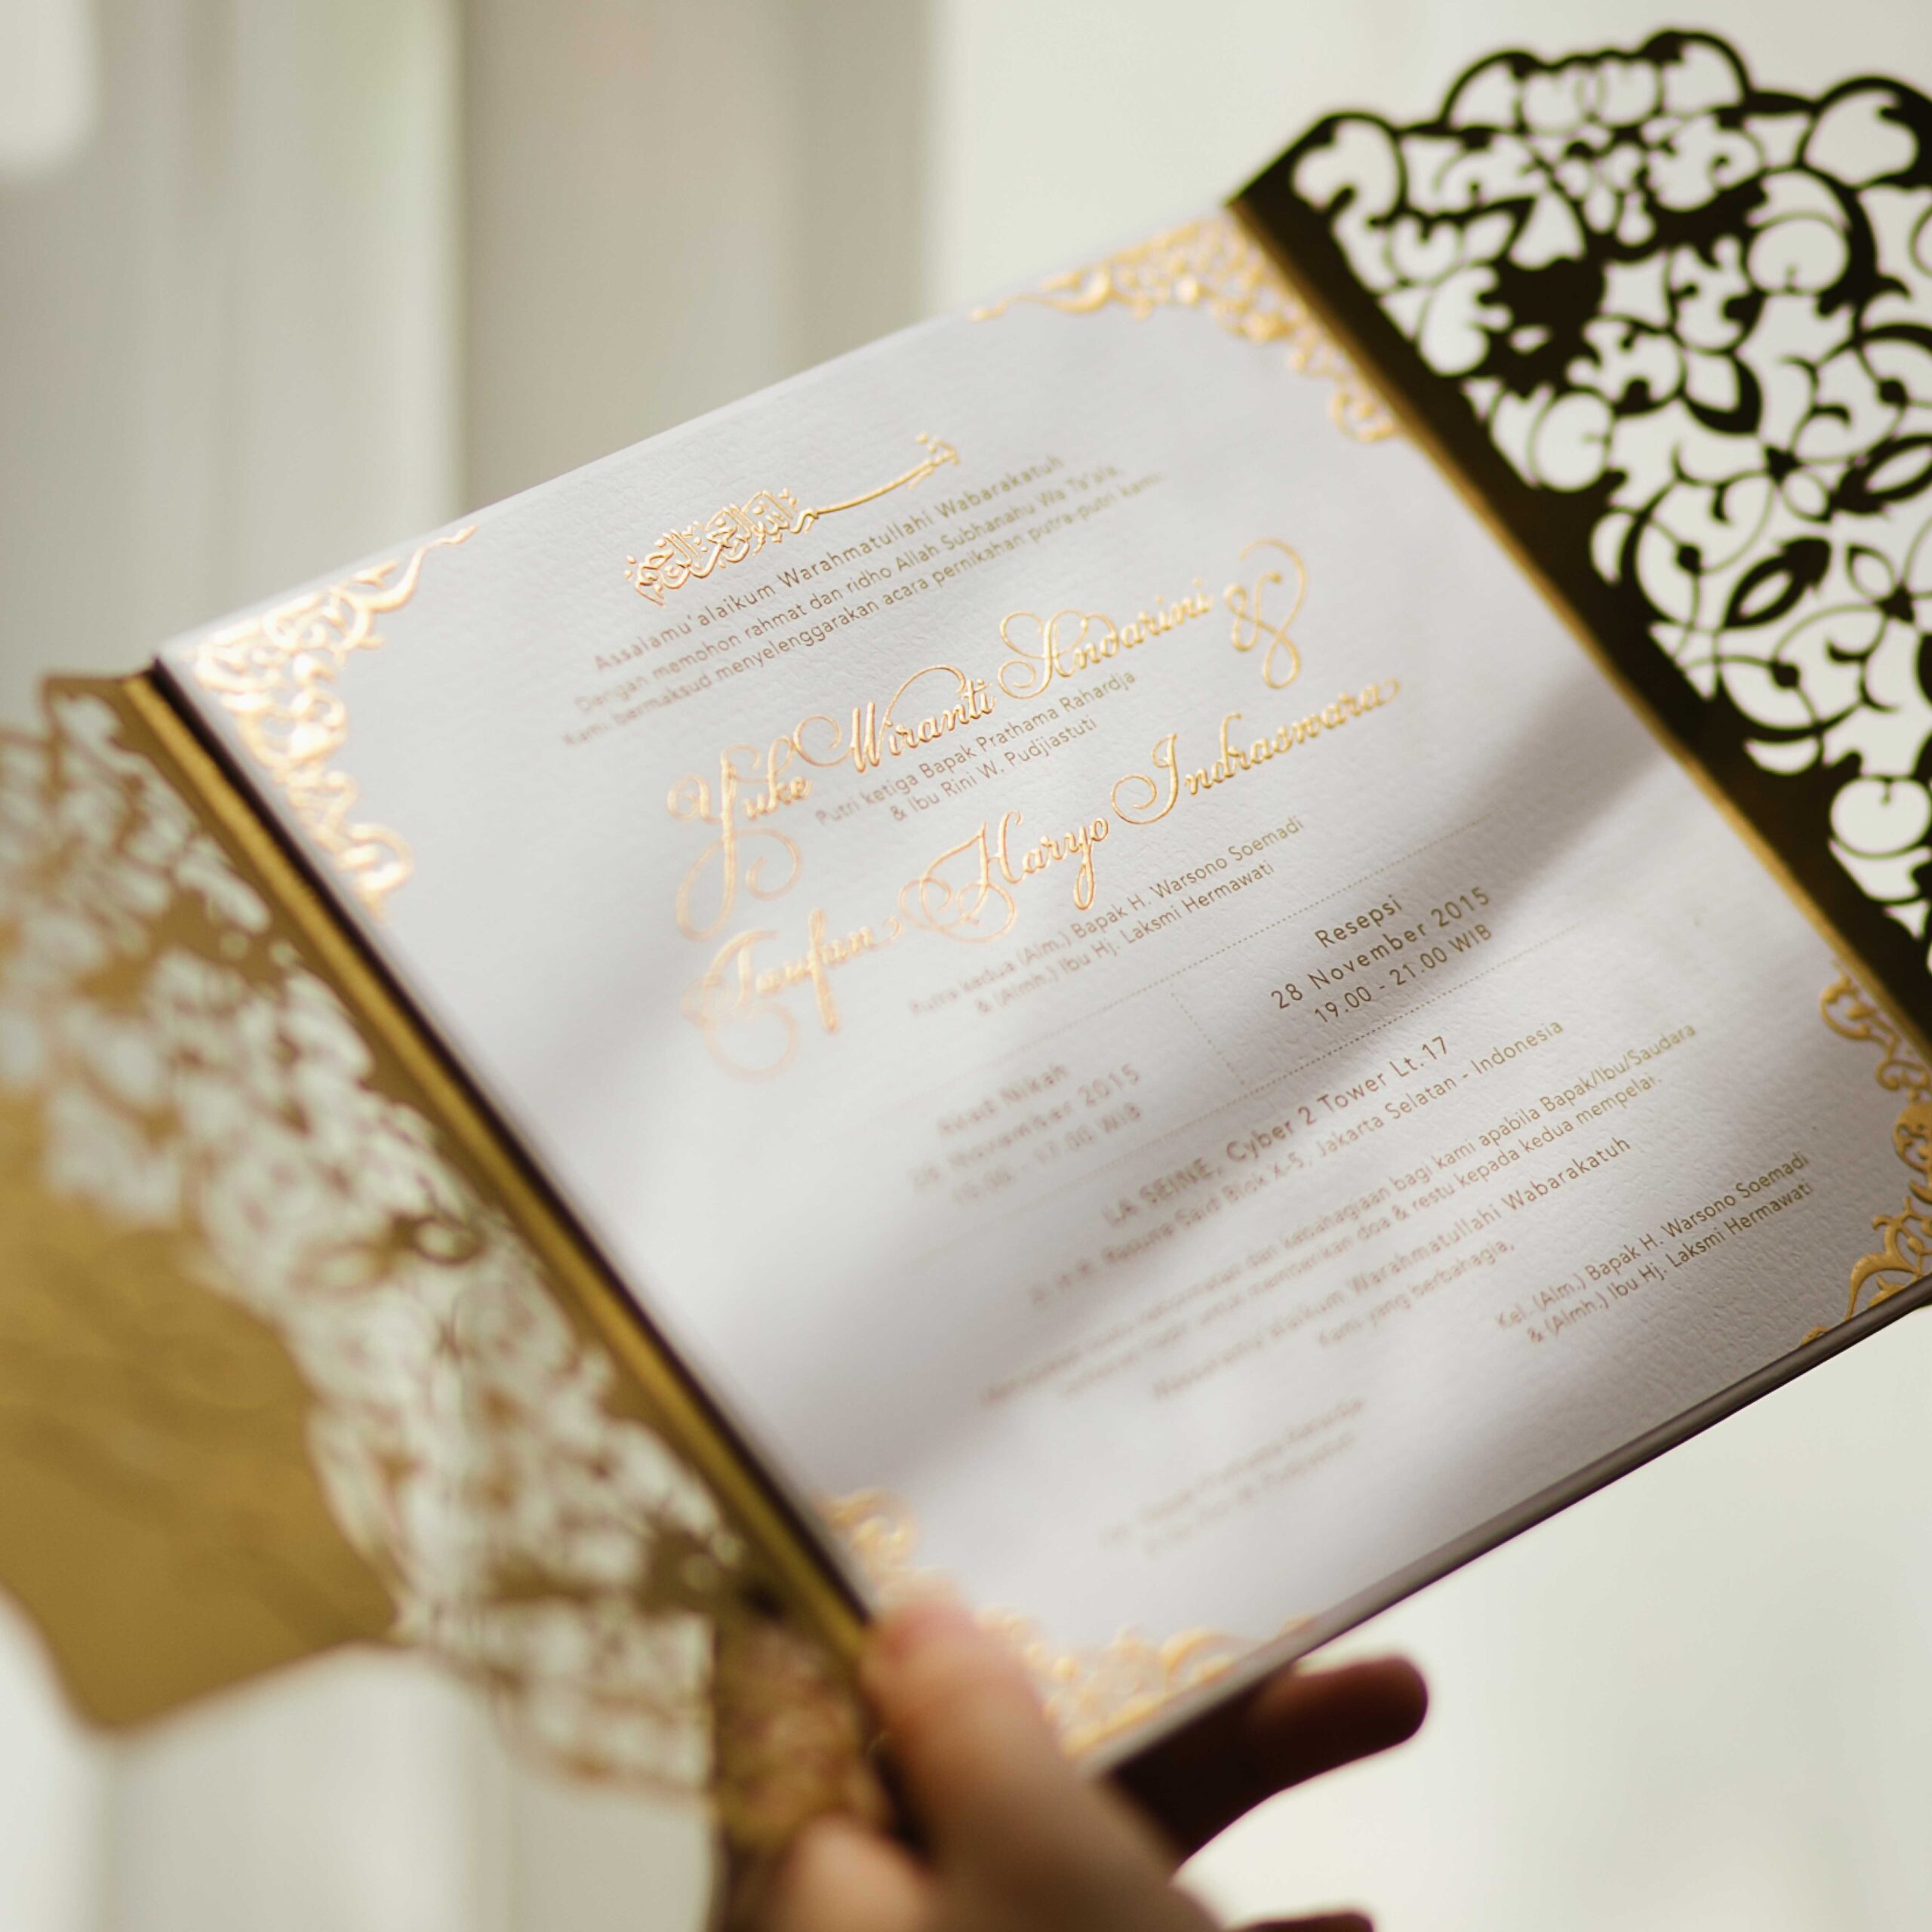 بسم الله الرحمن الرحيم
Assalamu'alaikum Warahmatullahi Wabarakatuh
Dengan memohon rahmat dan ridho Allah Subhanahu Wa Ta'ala,
Kami bermaksud menyelenggarakan acara pernikahan putra-putri kami:
Yuke Wiranti Andarini &
Putri ketiga Bapak Prathama Rahardja
& Ibu Rini W. Pudjiastuti
Taufun Haryo Indraswara
Putra kedua (Alm.) Bapak H. Warsono Soemadi
& (Almh.) Ibu Hj. Laksmi Hermawati
Akad Nikah
28 November 2015
17.00 WIB
Resepsi
28 November 2015
19.00 - 21.00 WIB
LA SEINE, Cyber 2 Tower Lt.17
Jl. H.R. Rasuna Said Blok X-5, Jakarta Selatan - Indonesia
kehormatan dan kebahagiaan bagi kami apabila Bapak/Ibu/Saudara
untuk memberikan doa & restu kepada kedua mempelai.
Wassalamu'alaikum Warahmatullahi Wabarakatuh
Kami yang berbahagia,
Kel. (Alm.) Bapak H. Warsono Soemadi
& (Almh.) Ibu Hj. Laksmi Hermawati